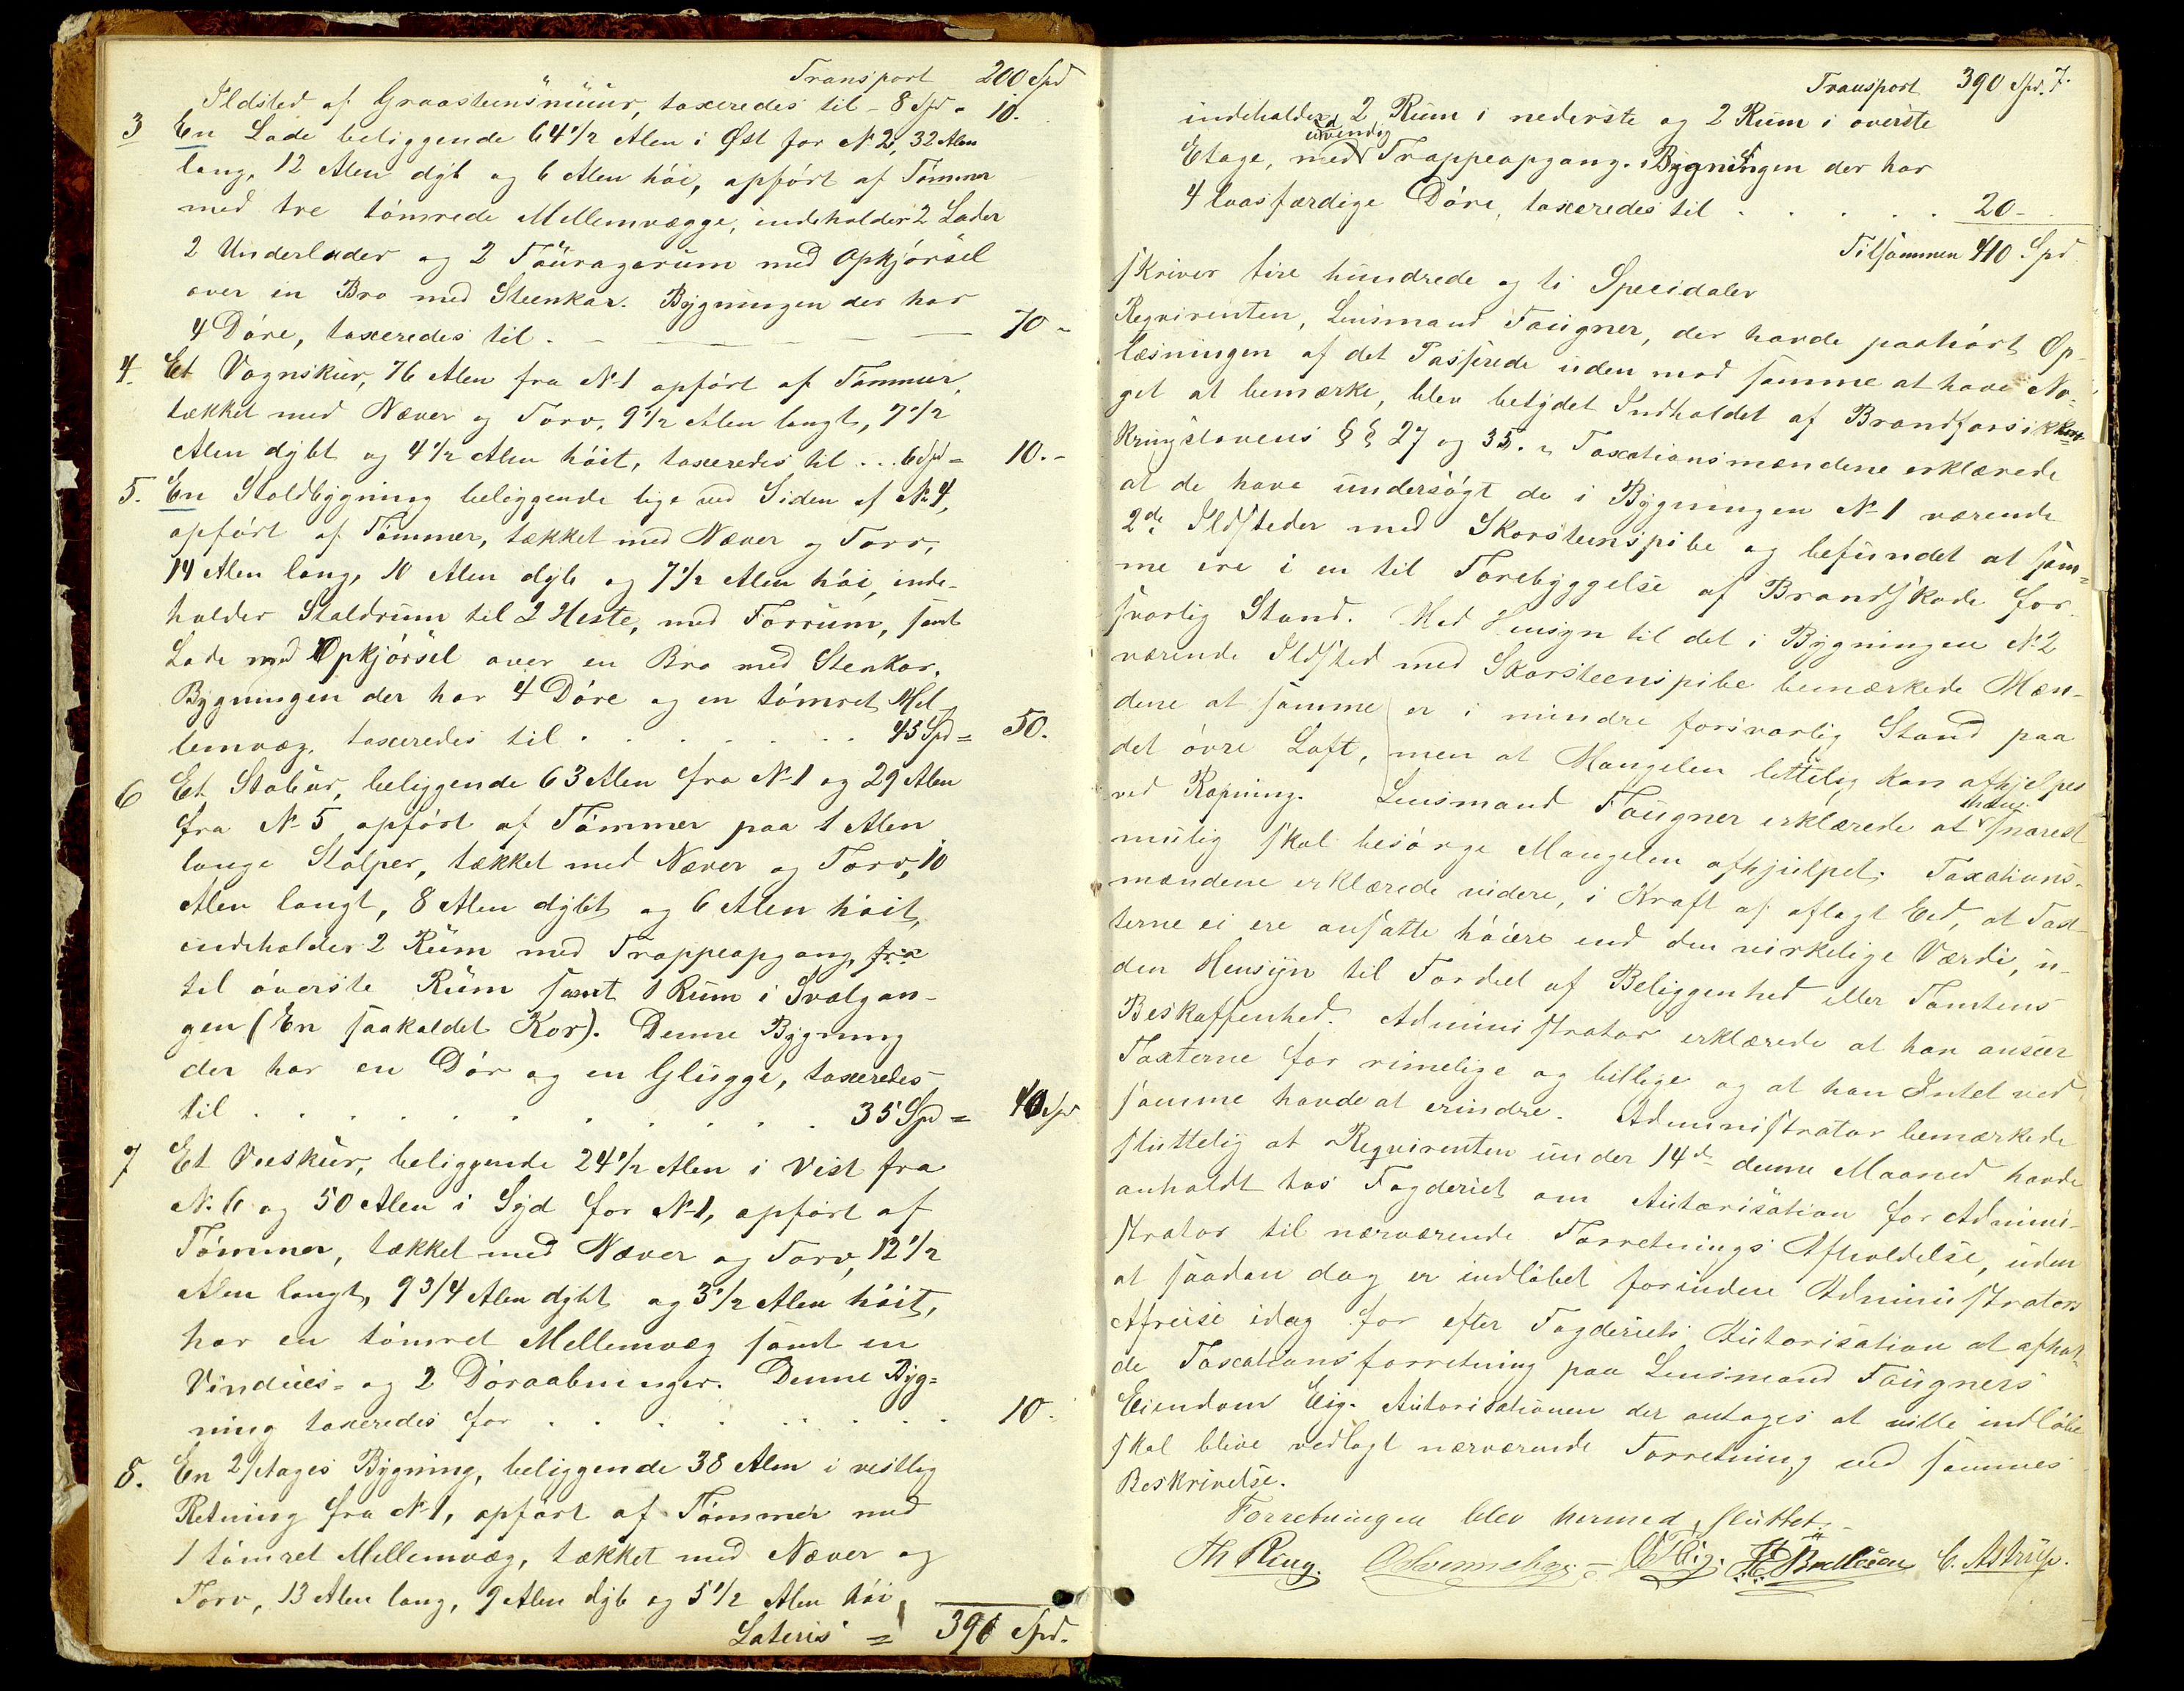 Transport 200 Spd
Ildsted af Graasteensmuur, taxeredes til - 8 Spd = 10.
3 En Lade beliggende 64 1/2 Alen i Øst for No 2, 32 Alen
lang, 12 Alen dyb og 6 Alen høi, opført af Tømmer
med tre tømrede Mellemvægge, indeholder 2 Lader
2 Underlader og 2 Fouragerum med Opkjørsel
over en Bro med Steenkar. Bygningen der har
4 Døre, taxeredes til . - - - - - - 70 -
4. Et Vognskur, 76 Alen fra No 1 opført af Tømmer,
tækket med Næver og Torv, 9 1/2 Alen langt, 7 1/2
Alen dybt og 4 1/2 Alen høit, taxeredes til ... 6 Spd = 10. -
5. En Staldbygning beliggende lige ved Siden af No 4,
opført af Tømmer, tækket med Næver og Torv,
14 Alen lang, 10 Alen dyb og 7 1/2 Alen høi, inde-
holder Staldrum til 2 Heste, med Forrum, samt
Lade med Opkjørsel over en Bro med Stenkar.
Bygningen der har 4 Døre og en tømret Mel-
lemvæg, taxeredes til . . . . . . . 45 Spd = 50.
6 Et Stabur, beliggende 63 Alen fra No 1 og 29 Alen
fra No 5 opført af Tømmer paa 1 Alen
lange Stolper, tækket med Næver og Torv, 10
Alen langt, 8 Alen dybt og 6 Alen høit,
indeholder 2 Rum med Trappeopgang, fra
til øverste Rum samt 1 Rum i Svalgan-
gen (En saakaldet Kor). Denne Bygning
der har en Dør og en Glugge, taxeredes
til . . . . . . . . . . . 35 Spd = 40 Spd
7 Et Veeskur, beliggende 24 1/2 Alen i Vest fra
No 6 og 50 Alen i Syd for No 1, opført af
Tømmer, tækket med Næver og Torv, 12 1/2
Alen langt, 9 3/4 Alen dybt og 3 1/2 Alen høit,
har en tømret Mellemvæg samt en
Vindues- og 2 Døraabninger. Denne Byg-
ning taxeredes for . . . . . . . . 10.
8. En 2 Etages Bygning, beliggende 38 Alen i vestlig
Retning fra No 1, opført af Tømmer med
1 tømret Mellemvæg, tækket med Næver og
Torv, 13 Alen lang, 9 Alen dyb og 5 1/2 Alen høi,
Lateris = 390 Spd.
Transport 390 Spd. 7.
indeholder 2 Rum i nederste og 2 Rum i øverste
udvendig
Etage, med Trappeopgang. i Bygningen der har
4 laasfærdige Døre, taxeredes til . . . . . 20 -
Tilsammen 410 Spd.
skriver fire hundrede og ti Speeidaler
Reqvirenten, Lensmand Faugner, der havde paahørt Op-
læsningen af det Passerede uden mod samme at have No-
get at bemærke, blev betydet Indholdet af Brandforsik-
kringslovens §§ 27 og 35. Taxationsmændene erklærede
at de have undersøgt de i Bygningen No 1 værende
2de Ildsteder med Skorsteenspibe og befundet at sam-
me ere i en til Forebyggelse af Brandskade for-
svarlig Stand. Med Hensyn til det i Bygningen No 2
værende Ildsted med Skorsteenspibe bemærkede Mæn-
dene at samme er i mindre forsvarlig Stand paa
det øvre Loft, men at Mangelen lettelig kan afhjelpes
ved Rapning. Lensmand Faugner erklærede at han snarest
mulig skal besørge Mangelen afhjulpet. Taxations-
mændene erklærede videre, i Kraft af aflagt Eed, at Tax-
terne ei ere ansatte høiere end den virkelige Værdi, u-
den Hensyn til Fordeel af Beliggenhed eller Tomtens
Beskaffenhed. Administrator erklærede at han anseer
Taxterne for rimelige og billige og at han Intet ved
samme havde at erindre. Administrator bemærkede
sluttelig at Reqvirenten under 14de denne Maaned havde
anholdt hos Fogderiet om Autorisation for Admini-
strator til nærværende Forretnings Afholdelse, uden
at saadan dog er indløbet forinden Administrators
Afreise idag for efter Fogderiets Autorisation at afhol-
de Taxationsforretning paa Lensmand Faugners
Eiendom Eig. Autorisationen der antages at ville indløbe
skal blive vedlagt nærværende Forretning ved sammes
Beskrivelse.
Forretningen blev hermed sluttet.
Th Ring. C. Astrup.